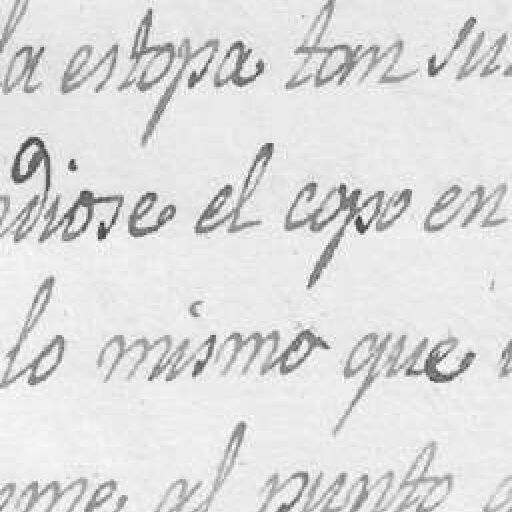 la estopa tan su
diose el copo en
lo mismo que
me al punto